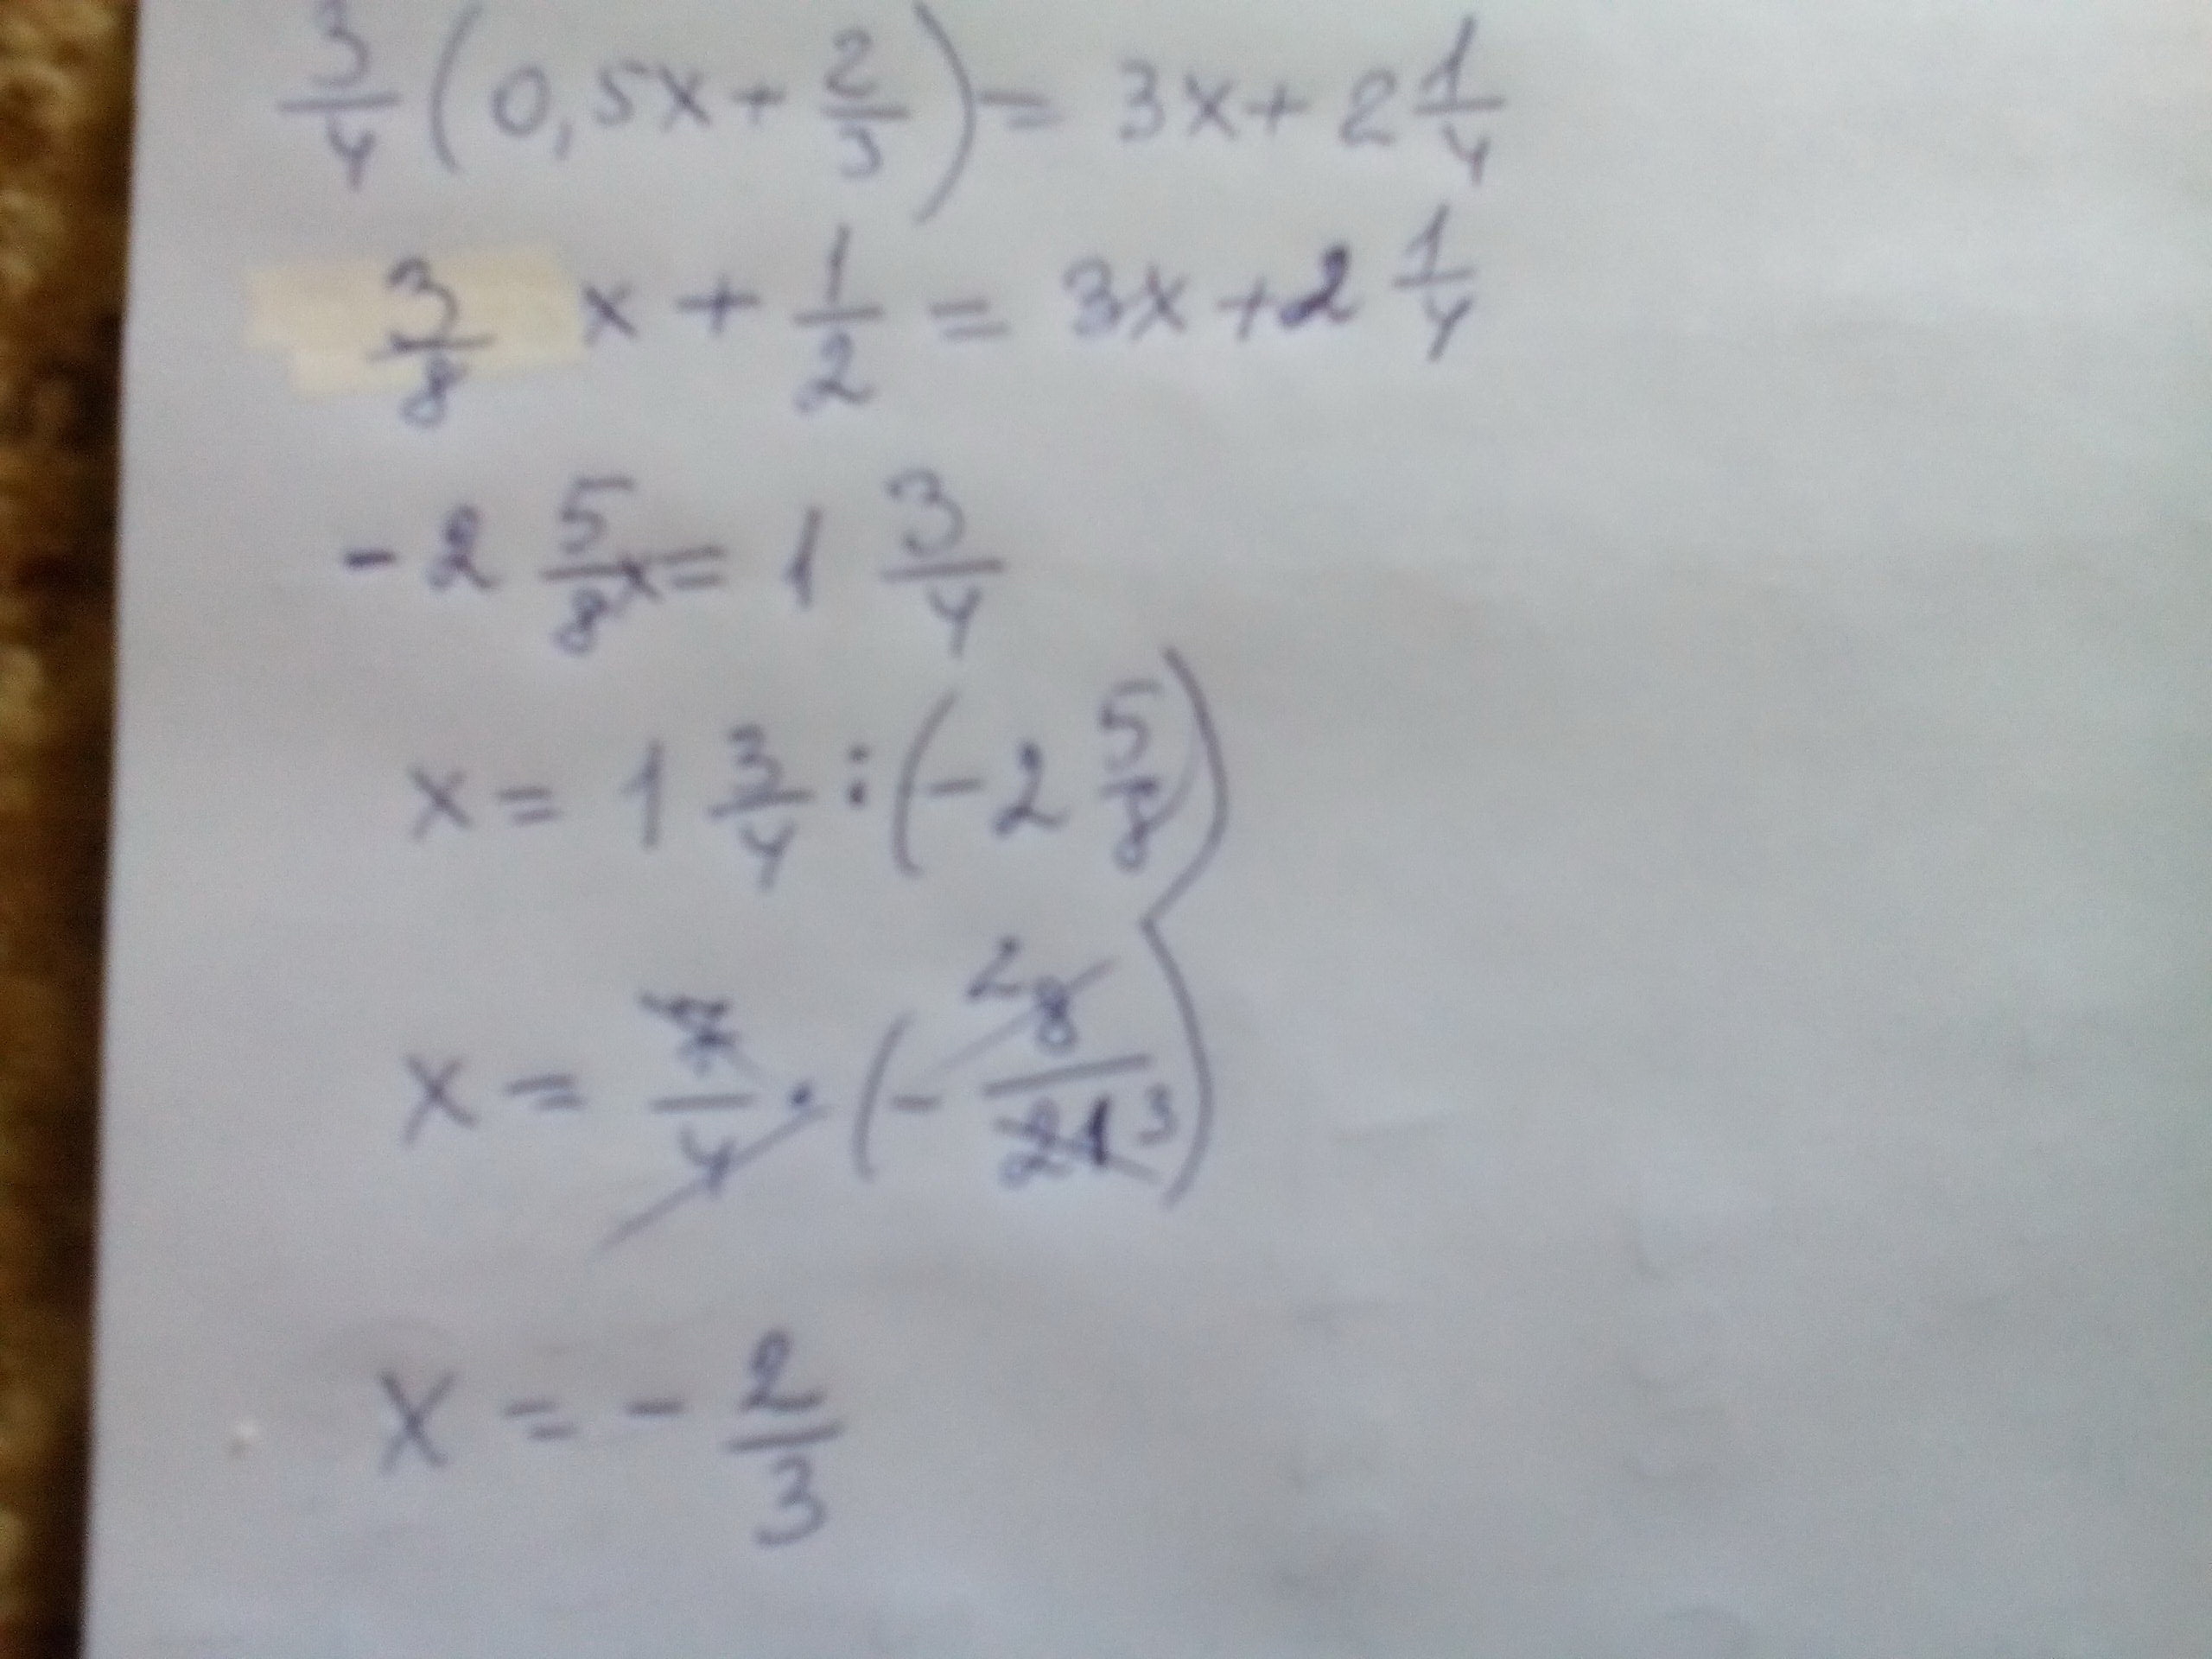 3/4 (0,5x + 2/3) = 3x + 2 1/4
3/8 x + 1/2 = 3x + 2 1/4
- 2 5/8 x = 1 3/4
x = 1 3/4 : (- 2 5/8)
x = 7/4 · (- 2 8/21 3)
x = - 2/3